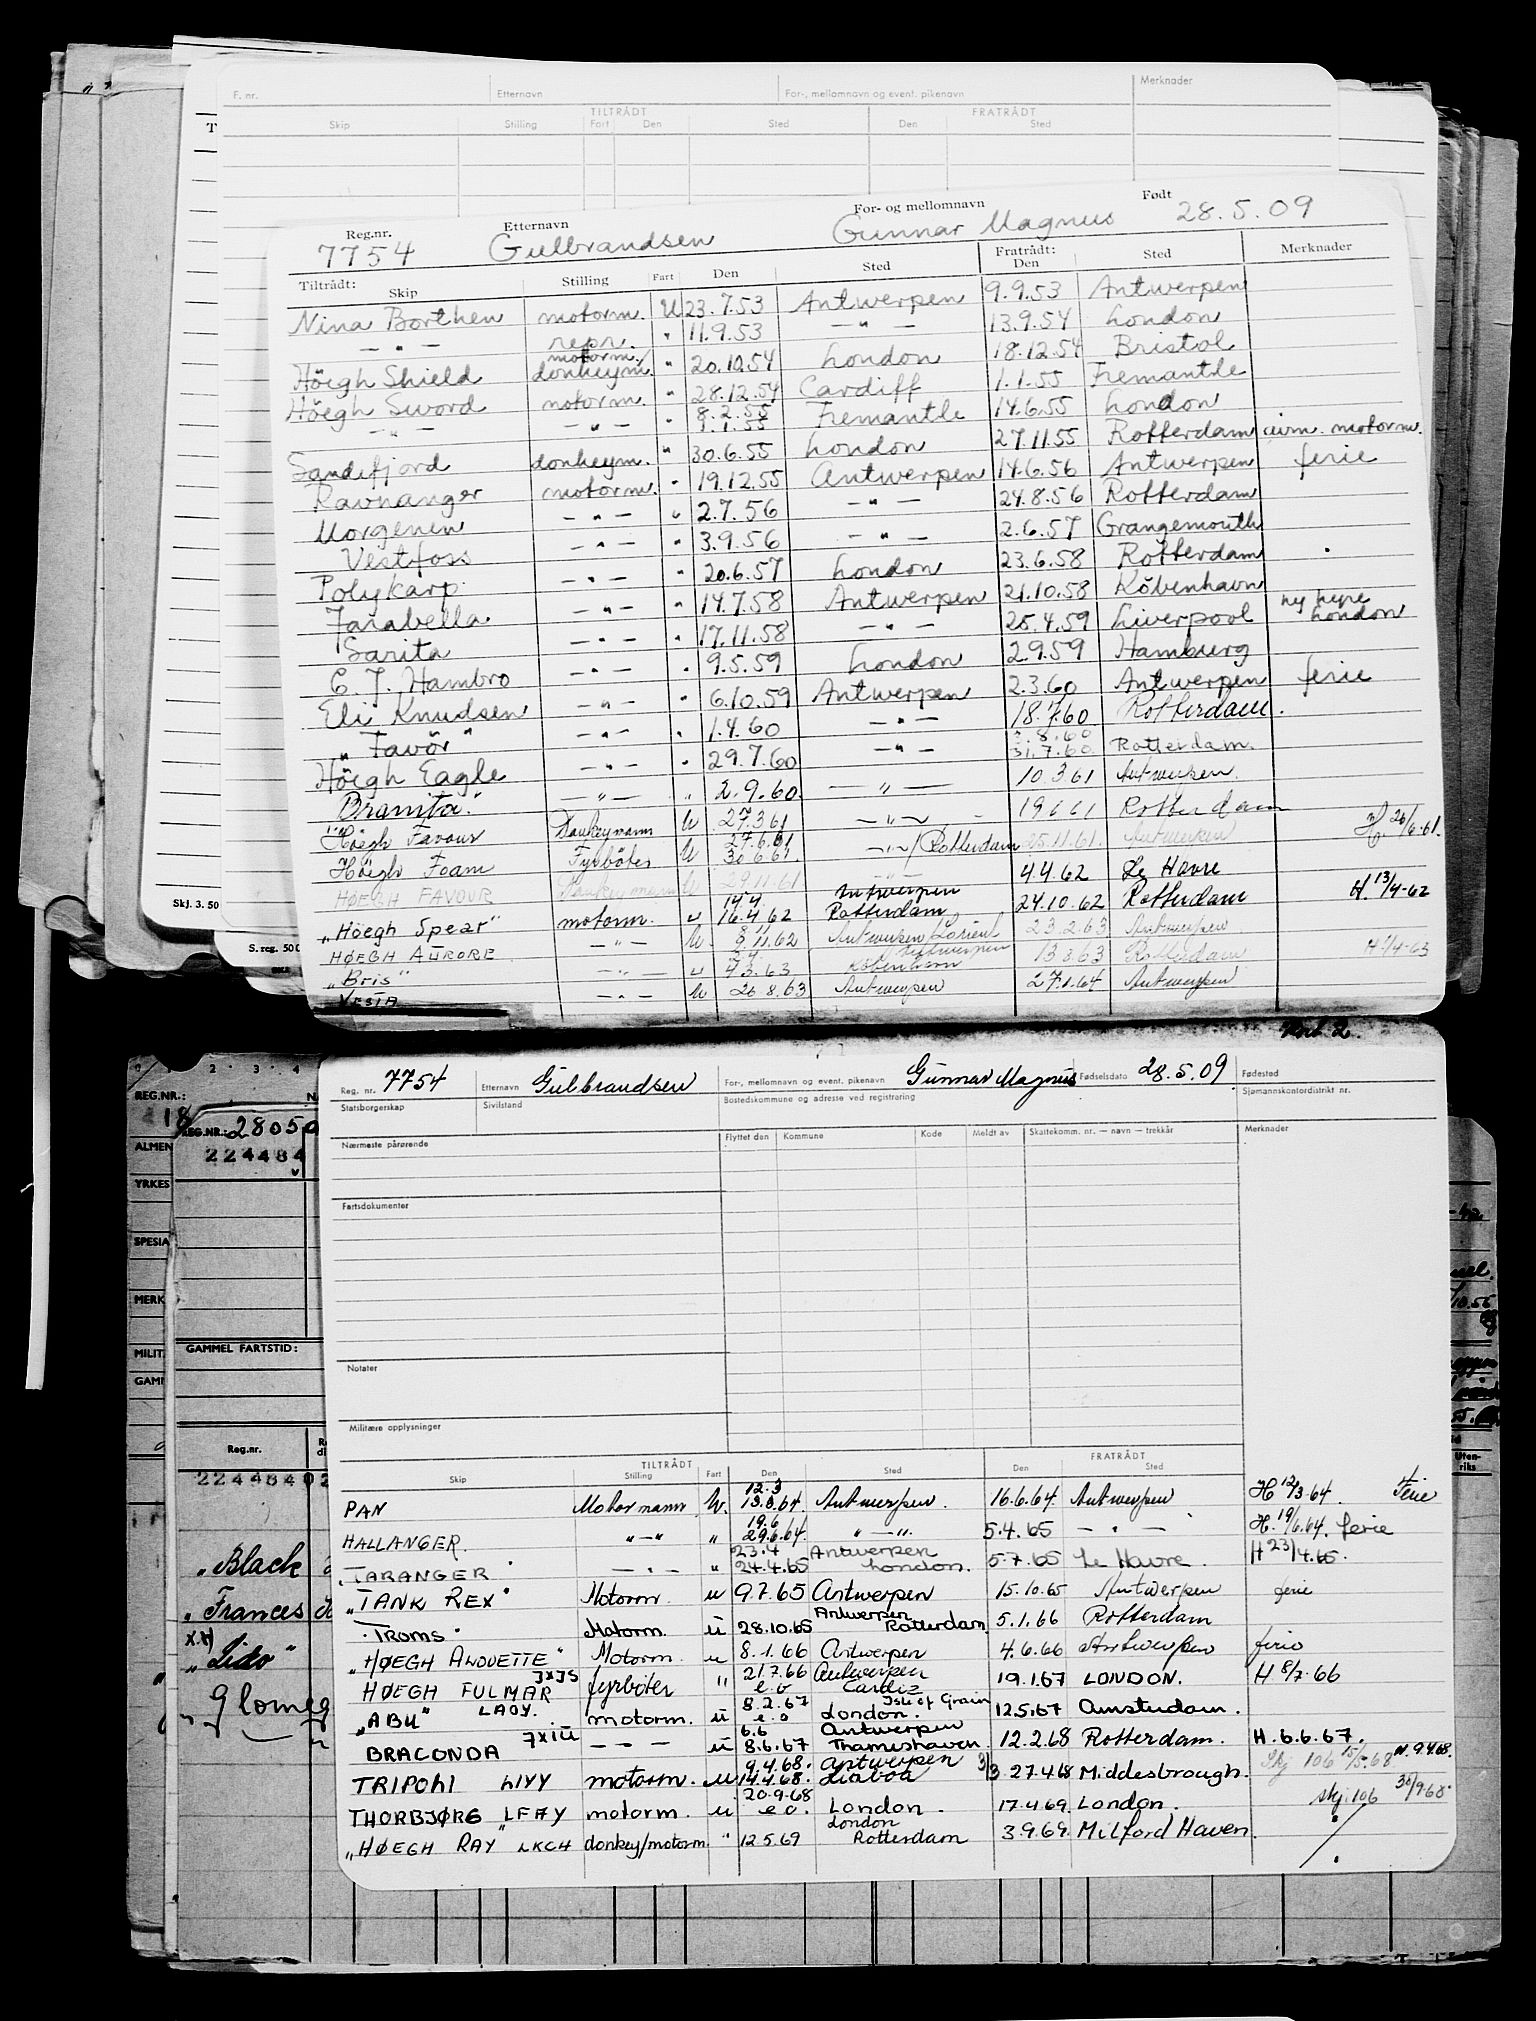 F. nr. Etternavn For-, mellomnavn og event. pikenavn Merknader
TILTRÅDT FRATRÅDT
Skip Stilling Fart Den Sted Den Sted
Reg.nr. Etternavn For- og mellomnavn Født
7754 Gulbrandsen Gunnar Magnus 28.5.09
Tiltrådt: Fratrådt:
Skip Stilling Fart Den Sted Den Sted Merknader
Nina Borthen motorm. U 23.7.53 Antwerpen 9.9.53 Antwerpen
— " — repr. " 11.9.53 — " — 13.9.54 London
Höegh Shield motorm. donkeym. " 20.10.54 London 18.12.54 Bristol
Höegh Sword motorm. " 28.12.54 Cardiff 1.1.55 Fremantle
— " — — " — " 8.2.55 1.1.55 Fremantle 14.6.55 London
Sandefjord donkeym. " 30.6.55 London 27.11.55 Rotterdam motorm.
Ravnanger motorm. " 19.12.55 Antwerpen 14.6.56 Antwerpen ferie
Morgenen — " — " 2.7.56 — " — 24.8.56 Rotterdam
Vestfoss — " — " 3.9.56 — " — 2.6.57 Grangemouth
Polykarp — " — " 20.6.57 London 23.6.58 Rotterdam
Farabella — " — " 14.7.58 Antwerpen 21.10.58 Köbenhavn
Sarita — " — " 17.11.58 — " — 25.4.59 Liverpool ny hyre London
C. J. Hambro — " — " 9.5.59 London 2.9.59 Hamburg
Eli Knudsen — " — " 6.10.59 Antwerpen 2.3.60 Antwerpen ferie
"Favör" — " — " 1.4.60 — " — 18.7.60 Rotterdam.
Höegh Eagle — " — " 29.7.60 — " — 31.7.60 Rotterdam.
"Branita" — " — " 2.9.60 — " — 10.3.61 Antwerpen.
"Höegh Favour Donkeymann U 27.3.61 — " — 19.6.61 Rotterdam
Höegh Foam Fyrböter U 27.6.61 30.6.61 — " —/Rotterdam 25.11.61 Antwerpen H 26/6-61.
HØEGH FAVOUR Donkeymann U 29.11.61 — " — 4.4.62 Le Havre
"Höegh Spear" motorm. u 14.4 16.4.62 Antwerpen Rotterdam 24.10.62 Rotterdam H. 13/4-62
HØEGH AURORE — " — U. 8.11 9.11.62 Antwerpen Lorient 23.2.63 Antwerpen
"Bris" — " — u 4.3.63 Antwerpen København 13.8.63 Rotterdam
VESTA — " — U 26.8.63 Antwerpen 27.1.64 Antwerpen
Skj. 3. 50
S. reg. 500
Reg. nr. 7754 Etternavn Gulbrandsen For-, mellomnavn og event. pikenavn Gunnar Magnus Fødselsdato 28.5.09 Fødested
Statsborgerskap Sivilstand Bostedskommune og adresse ved registrering Sjømannskontordistrikt nr.
Nærmeste pårørende Flyttet den Kommune Kode Meldt av Skattekomm. nr. — navn — trekkår Merknader
Fartsdokumenter
Notater
Militære opplysninger
TILTRÅDT FRATRÅDT
Skip Stilling Fart Den Sted Den Sted
PAN Motormann U. 12.3 13.3.64. Antwerpen. 16.6.64. Antwerpen H 12/3-64. Ferie
HALLANGER. " — " " 19.6 29.6.64. " — ". 5.4.65 — " — H. 19/6.64. ferie
"TARANGER — " — " 23.4 24.4.65 Antwerpen London. 5.7.65 Le Havre. H 23/4.65.
"TANK REX" Motorm. u 9.7.65 Antwerpen 15.10.65 Antwerpen ferie
"TROMS" Motorm. ü 28.10.65 Antwerpen Rotterdam 5.1.66 Rotterdam
"HØEGH ALOUETTE" Motorm. u 8.1.66 Antwerpen 4.6.66 Antwerpen ferie
HØEGH FULMAR JXJS fyrböter " 21.7.66 e.o Antwerpen Cardiz 19.1.67 LONDON. H 8/7.66
"ABU" LAOY. motorm. ü 8.2.67 e.o London. Isle of Grain 12.5.67 Amsterdam.
BRACONDA — — — ü 6.6 8.6.67 Antwerpen Thameshaven. 12.2.68 Rotterdam. H. 6.6.67.
TRIPOLI LIYY motorm. u 9.4.68. 14.4.68. Antwerpen Lisboa 27.4.68 Middesbrough. Skj 106 15/5.68 H. 9.4.68.
THORBJØRG LFAY motorm. u 20.9.68 e.o. London. 17.4.69. London. skj. 106 30/9-68
"HØEGH RAY" LKCH donkey/motorm. " 12.5.69 London Rotterdam 3.9.69. Milford Haven
REG.NR.:
REG.NR.: 28050
224484
ALMEN
YRKES
SPESIA
MERK
MILIT.
GAMMEL FARTSTID:
Reg.nr.
2244840
"Black
"Frances
"Lido"
Glomeg
Uten-
riks